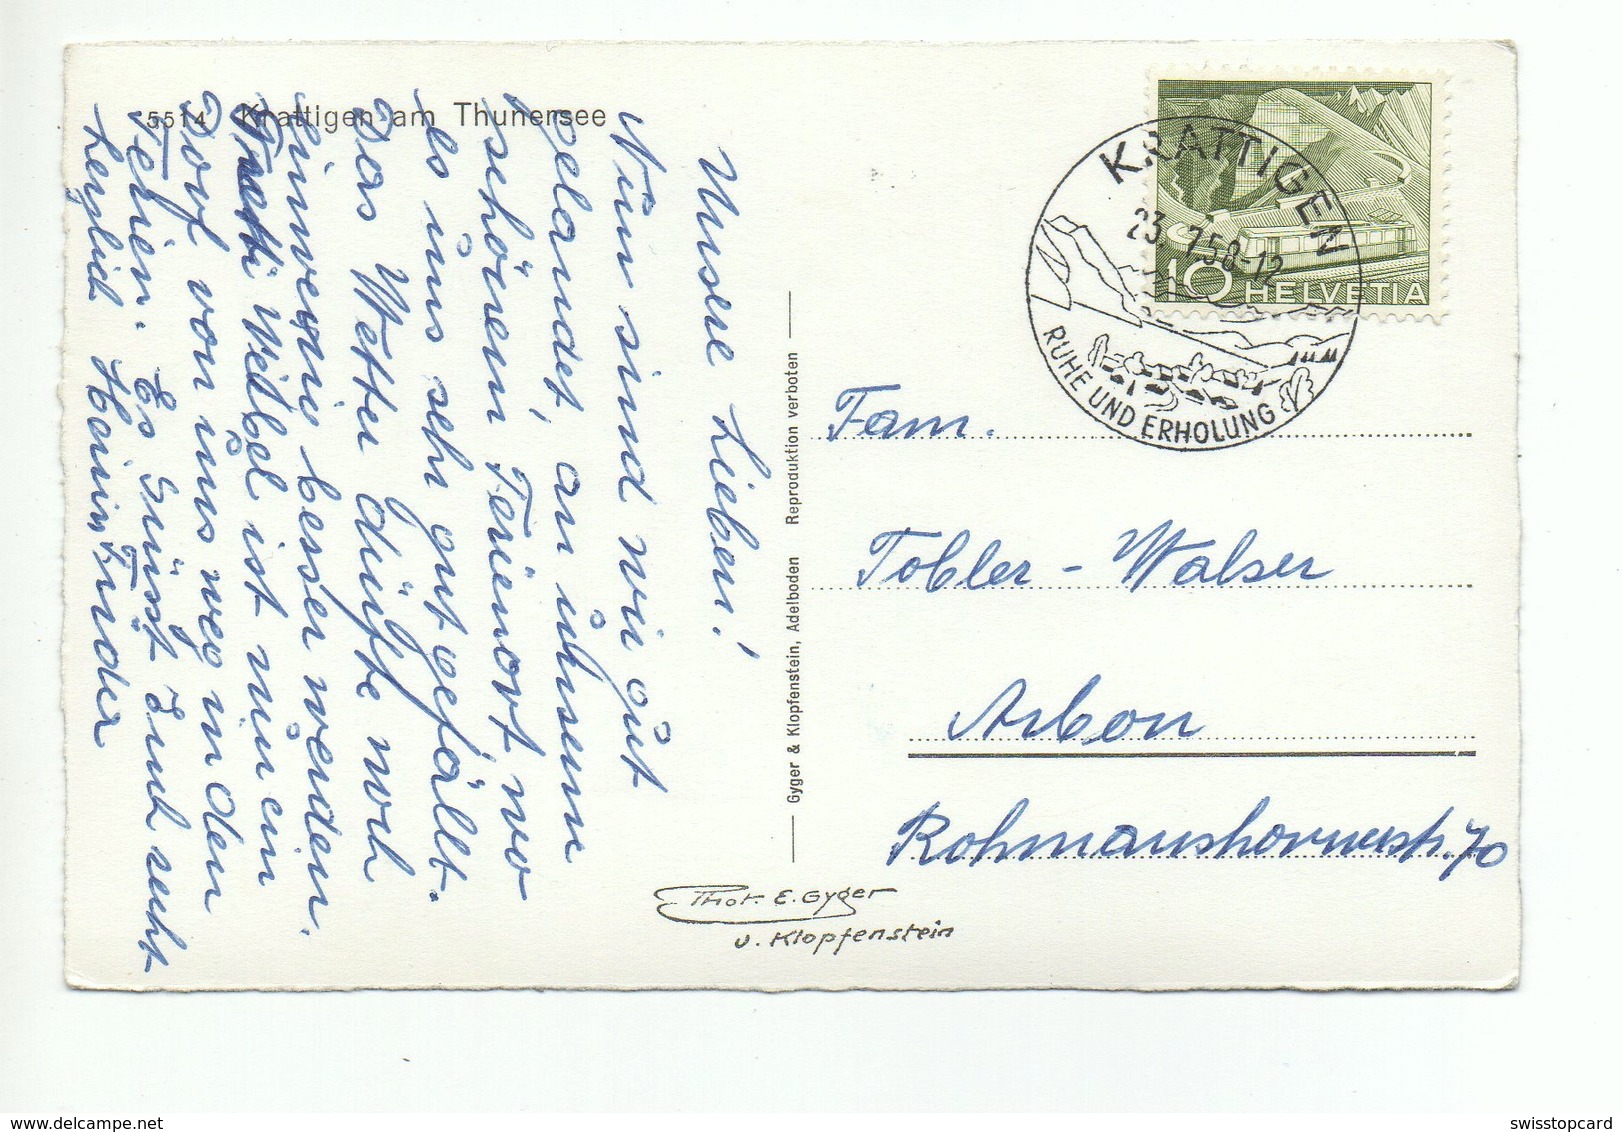 5514 Krattigen am Thunersee
Unsere Lieben!
Nun sind wir gut
gelandet, an unserm
schönem Ferienort, wo
es uns sehr gut gefällt.
Das Wetter dürfte noch
besser werden.
Weibel ist nun ein
Dorf von uns weg in den
Ferien. Es grüsst Euch recht
herzlich
Reproduktion verboten
Gyger & Klopfenstein, Adelboden
Phot. E. Gyger
u. Klopfenstein
KRATTIGEN
23. 7.58-12
RUHE UND ERHOLUNG
10 HELVETIA
Fam.
Tobler - Walser
Arbon
Romanshornerstr. 70
swisstopcard